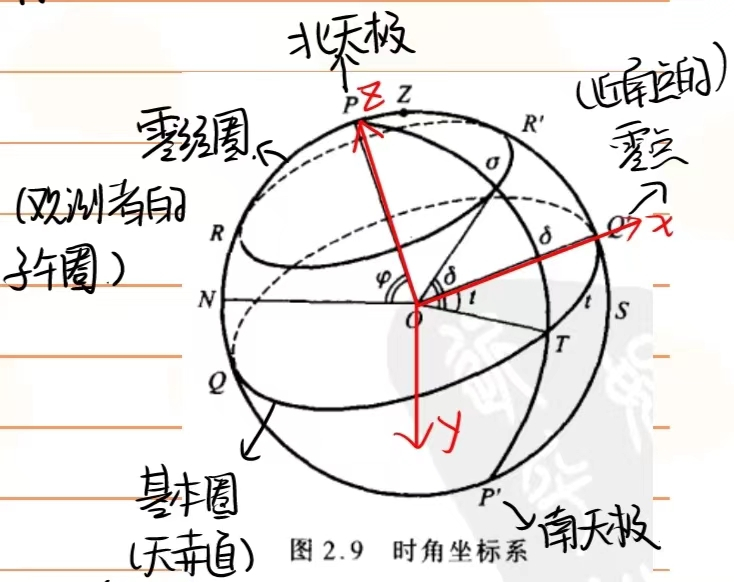 北天极
P Z Z
(近南点的)
零点
零经圈
(观测者的
子午圈)
R'
σ
R
δ
Q'
x
φ
δ
t
t
N
O
S
T
Q
y
P'
基本圈
(天赤道)
南天极
图 2.9 时角坐标系